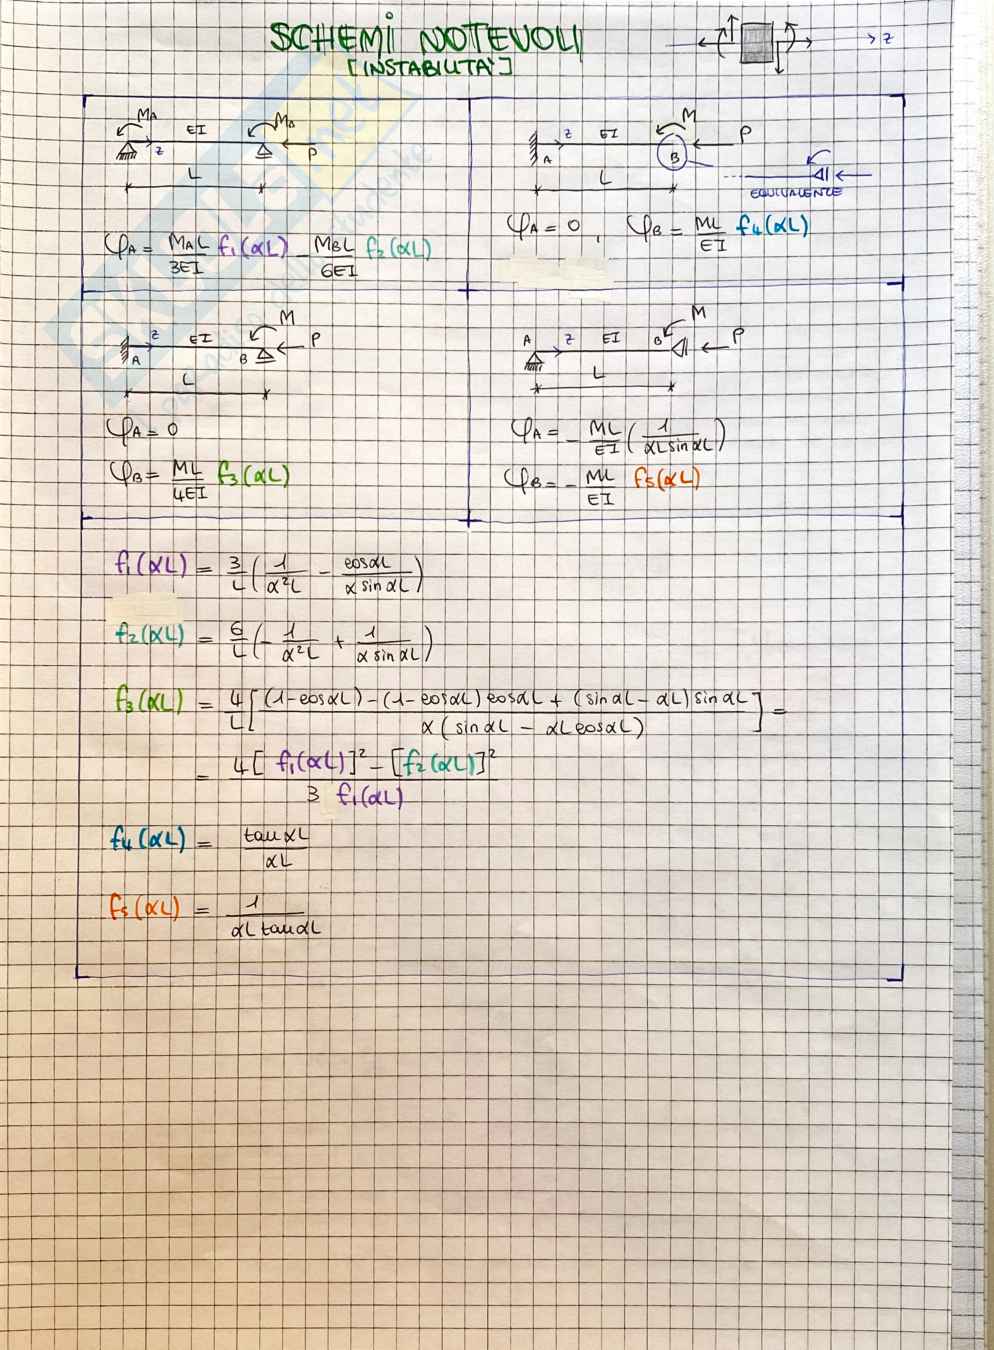 SCHEMI NOTEVOLI
[INSTABILITA']
z
MA EI MB
z P
L
φA = MAL/3EI f1(αL) - MBL/6EI f2(αL)
M
z EI P
A B
L
EQUIVALENZE
φA = 0 , φB = ML/EI f4(αL)
M
z EI P
A B
L
φA = 0
φB = ML/4EI f3(αL)
M
A z EI B P
L
φA = - ML/EI (1/αL sin αL)
φB = - ML/EI f5(αL)
f1(αL) = 3/L (1/α²L - cosαL/α sin αL)
f2(αL) = 6/L (- 1/α²L + 1/α sin αL)
f3(αL) = 4/L [(1-cosαL)-(1-cosαL)cosαL + (sin αL - αL) sin αL / α (sin αL - αL cosαL)] =
= 4[f1(αL)]² - [f2(αL)]² / 3 f1(αL)
f4(αL) = tan αL / αL
f5(αL) = 1 / αL tan αL